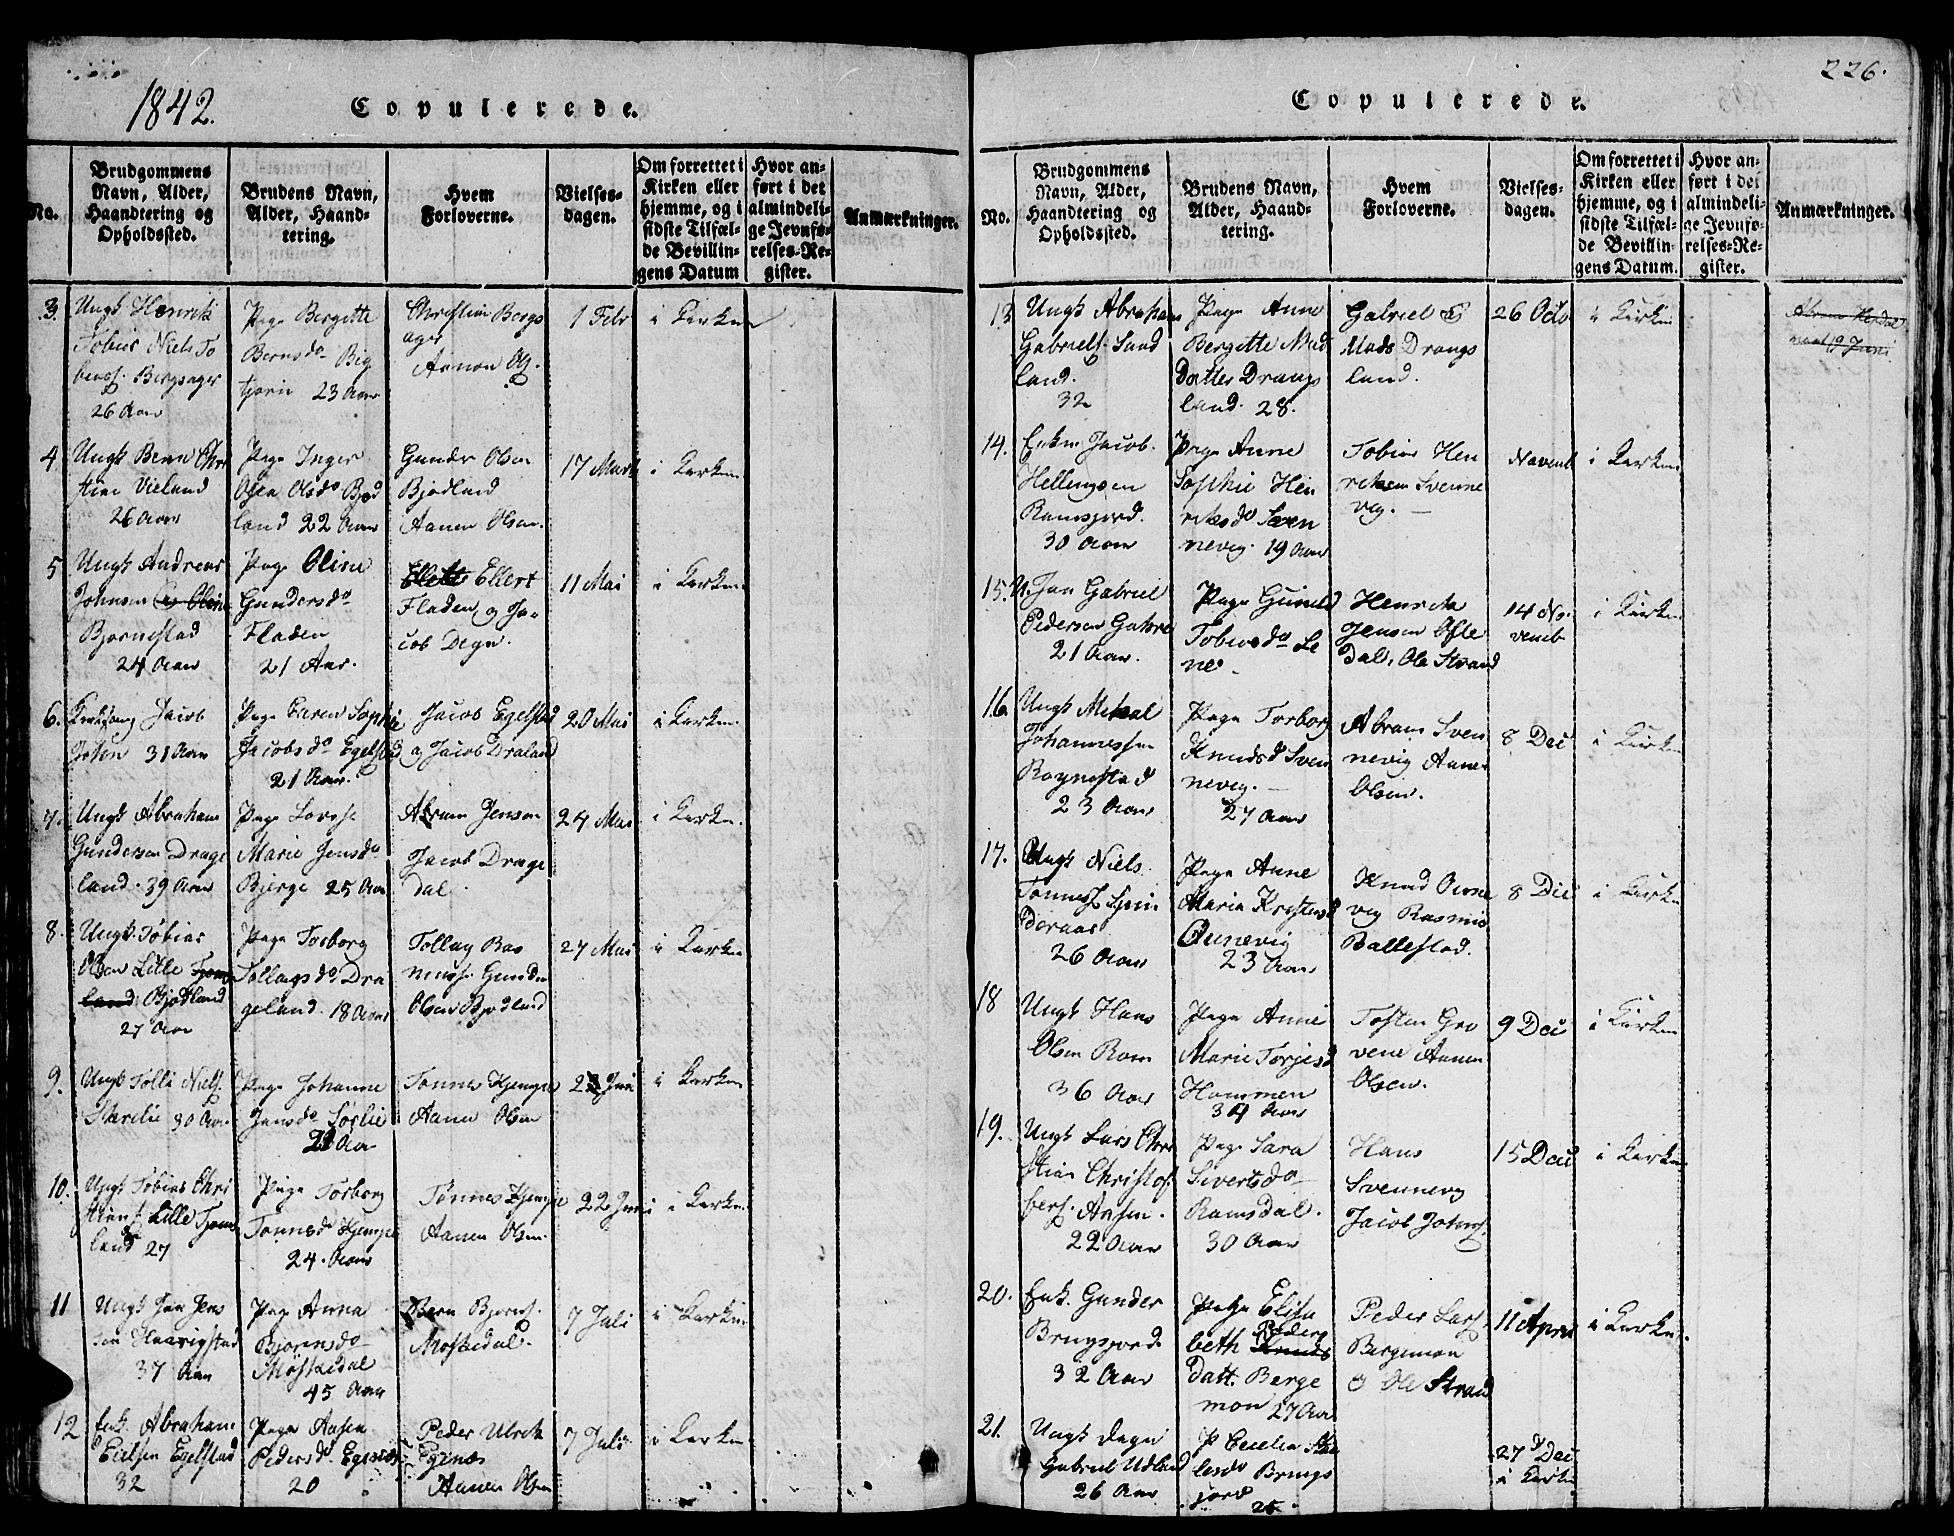 1842.
Copulerede.
No.
Brudgommens
Navn, Alder,
Haandtering og
Opholdssted.
Brudens Navn,
Alder, Haand-
tering.
Hvem
Forloverne.
Vielses-
dagen.
Om forrettet i
Kirken eller
hjemme, og i
sidste Tilfæl-
de Bevillin-
gens Datum
Hvor an-
ført i det
almindeli-
ge Jevnfø-
relses-Re-
gister.
Anmærkninger.
3.
Ungk Henrik
Tobias Niels To
biass. Bergsager
26 Aar
Pige Bergitte
Bernsdr Big
tjørn 23 Aar
Christian Bergs
ager
Aanon Ols.
1 Febr
i Kirken
4
Ungk Bern Chri
stian Vieland
26 Aar
Pige Inger
Olsdr Bjød
land 22 Aar
Gunder Olsen
Bjødland
Aanen Olsen.
17 Marts
i Kirken
5
Ungk Andreas
Johnsen
Bjørnestad
24 Aar
Pige Oline
Gundersdr
Fladen
21 Aar.
Ellert
Fladen og Ja-
cob Degn.
11 Mai
i Kirken
6.
Jacob
John 31 Aar
Pige Karen Sophie
Jacobsdr Egelstad
21 Aar.
Jacob Egelstad
og Jacob Draland
20 Mai
i Kirken
7.
Ungk Abraham
Gundersen Drage
land. 39 Aar
Pige Lovise
Marie Jensdr
Bjerge 25 Aar
Abram Jensen
Jacob Drage
dal.
24 Mai
i Kirken.
8.
Ungk. Tobias
Olsen Litle Tjom
land Bjødland
27 Aar
Pige Torborg
Tollagsdr Dra
geland. 18 Aar
Tollag Ras
muss. Gunder
Olsen Bjødland
27 Mai
i Kirken
9.
Ungk Tolli Niels.
30 Aar
Pige Johanne
Jensdr Sørlie
21 Aar
Tønnes Hjempe
Aanen Olsen
Juni
i Kirken
10.
Ungk Tobias Chri
stians. Lille Tjom
land 27
Pige Torborg
Tønnesdr Hjempe
24. Aar
Tønnes Hjempe
Aanen Olsen.
22 Juni
i Kirken
11
Ungk Jan Jens
sen Haarigstad
37 Aar
Pige Anna
Bjørnsdr
Møskedal
45 Aar
Bern Bjørns.
Moskedal.
7 Juli
i Kirken
12
Enk. Abraham
Eielsen Egelstad
32
Pige Aasen
Pedersdr Egenæs
20
Peder Ulrik
Egenæs
Aanen Olsen
7 Juli
i Kirken
226.
Copulerede.
No.
Brudgommens
Navn, Alder,
Haandtering og
Opholdssted.
Brudens Navn,
Alder, Haand-
tering.
Hvem
Forloverne.
Vielses-
dagen.
Om forrettet i
Kirken eller
hjemme, og i
sidste Tilfæl-
de Bevillin-
gens Datum.
Hvor an-
ført i det
almindeli-
ge Jevnfø-
relses-Re-
gister.
Anmærkninger.
13
Ungk Abraham
Gabriels. Sand
land.
32
Pige Anne
Bergitte Mads
Datter Drangs
land. 28.
Gabriel &
Mads Drangs
land.
26 Octo
i Kirken
19 Juni
14.
Enkm. Jacob
Hellingsen
Ramsjord.
30 Aar
Pige Anne
Sophie Hen
riksdr Sven
nevig. 19 Aar
Tobias Hen
riksen Svenne
vig. —
Novemb
i Kirken
15.
U. Jan Gabriel
Pedersen
21 Aar.
Pige Guneld
Tobiasdr Le
ne.
Henrik
Jensen Ofte
dal, Ole Strand
14 No-
vemb.
i Kirken
16.
Ungk Mikal
Johannessen
Røynestad
23 Aar
Pige Torborg
Knudsd Sven
nevig. —
27 Aar
Abram Sven
nevig Aanen
Olsen.
8 Dec
i Kirken
17.
Ungk Niels
Tønness. Spin
deraas
26 Aar
Pige Anne
Maria Krystensd
Aunevig
23 Aar
Knud Aune
vig Rasmus
Ballestad.
8 Dec
i Kirken
18
Ungk Hans
Olsen Rom
36 Aar
Pige Anne
Marie Torjesd
Hommen
34 Aar
Tosten Gro
vene Aanen
Olsen.
9 Dec
i Kirken
19.
Ungk Lars Chri
stian Christof
fers. Aasen.
22 Aar
Pige Sara
Sivertsdr
Ramsdal.
30 Aar
Hans
Svennevig
Jacob Johns.
15 Dec
i Kirken
20.
Enk. Gunder
Brugsjord.
32 Aar
Pige Elisa
beth Peders
Knuds
datt. Berge
mon 27 Aar
Peder Lars.
Bergemon
& Ole Strand
11 April
i Kirken.
21.
Ungk Dagn
Gabriel Udland
26 Aar
P Cecelia
Brungs
jord
25.
27 Dec
i Kirken